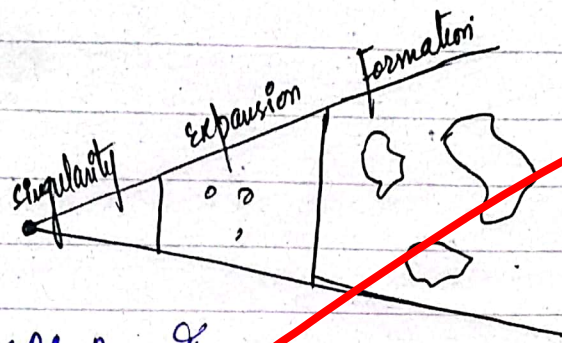 singularity
expansion
Formation